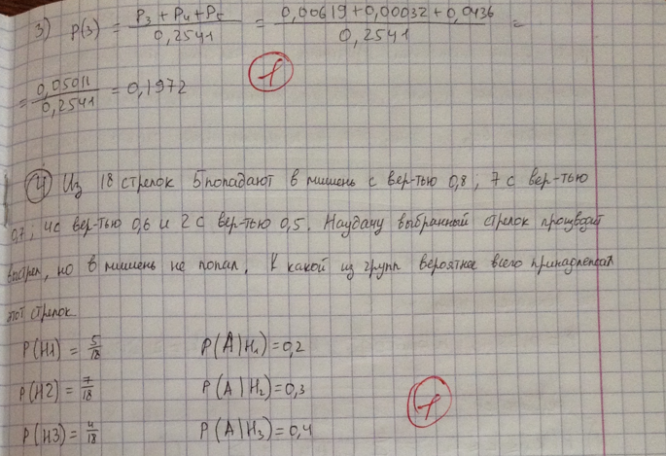 3) P(3) = P₃ + P₄ + P₅ / 0,2541 = 0,00619 + 0,00032 + 0,0436 / 0,2541 =
= 0,05011 / 0,2541 = 0,1972
④ Из 18 стрелок 5 попадают в мишень с вер-тью 0,8; 7 с вер-тью
0,7; 4 с вер-тью 0,6 и 2 с вер-тью 0,5. Наудачу выбранный стрелок производит
выстрел, но в мишень не попал. К какой из групп вероятнее всего принадлежал
этот стрелок
P(H1) = 5/18 P(A|H₁) = 0,2
P(H2) = 7/18 P(A|H₂) = 0,3
P(H3) = 4/18 P(A|H₃) = 0,4